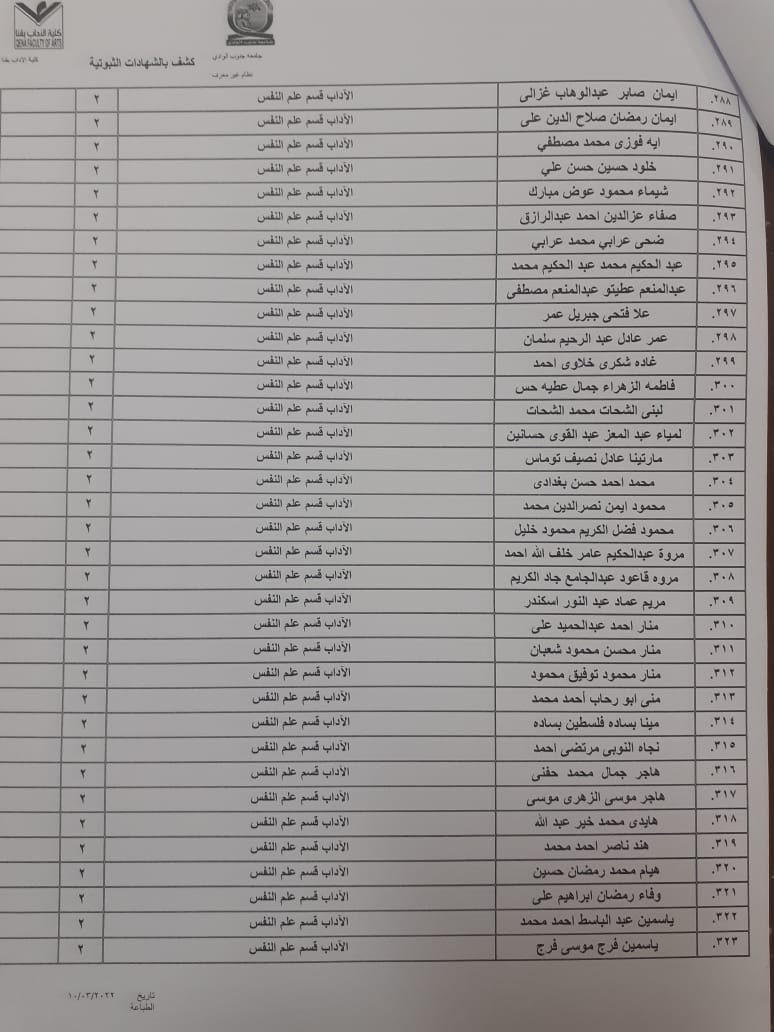 كلية الآداب بقنا
QENA FACULTY OF ARTS
كلية الآداب بقنا
جامعة جنوب الوادي
نظام غير معرف
كشف بالشهادات الثبوتية
٢٨٨. ايمان صابر عبدالوهاب غزالى الأداب قسم علم النفس ٢
٢٨٩. ايمان رمضان صلاح الدين على الأداب قسم علم النفس ٢
٢٩٠. ايه فوزى محمد مصطفي الأداب قسم علم النفس ٢
٢٩١. خلود حسين حسن علي الأداب قسم علم النفس ٢
٢٩٢. شيماء محمود عوض مبارك الأداب قسم علم النفس ٢
٢٩٣. صفاء عزالدين احمد عبدالرازق الأداب قسم علم النفس ٢
٢٩٤. ضحى عرابي محمد عرابي الأداب قسم علم النفس ٢
٢٩٥. عبد الحكيم محمد عبد الحكيم محمد الأداب قسم علم النفس ٢
٢٩٦. عبدالمنعم عطيتو عبدالمنعم مصطفى الأداب قسم علم النفس ٢
٢٩٧. علا فتحى جبريل عمر الأداب قسم علم النفس ٢
٢٩٨. عمر عادل عبد الرحيم سلمان الأداب قسم علم النفس ٢
٢٩٩. غاده شكرى خلاوى احمد الأداب قسم علم النفس ٢
٣٠٠. فاطمه الزهراء جمال عطيه حس الأداب قسم علم النفس ٢
٣٠١. لبنى الشحات محمد الشحات الأداب قسم علم النفس ٢
٣٠٢. لمياء عبد المعز عبد القوى حسانين الأداب قسم علم النفس ٢
٣٠٣. مارتينا عادل نصيف توماس الأداب قسم علم النفس ٢
٣٠٤. محمد احمد حسن بغدادى الأداب قسم علم النفس ٢
٣٠٥. محمود ايمن نصرالدين محمد الأداب قسم علم النفس ٢
٣٠٦. محمود فضل الكريم محمود خليل الأداب قسم علم النفس ٢
٣٠٧. مروة عبدالحكيم عامر خلف الله احمد الأداب قسم علم النفس ٢
٣٠٨. مروه قاعود عبدالجامع جاد الكريم الأداب قسم علم النفس ٢
٣٠٩. مريم عماد عبد النور اسكندر الأداب قسم علم النفس ٢
٣١٠. منار احمد عبدالحميد على الأداب قسم علم النفس ٢
٣١١. منار محسن محمود شعبان الأداب قسم علم النفس ٢
٣١٢. منار محمود توفيق محمود الأداب قسم علم النفس ٢
٣١٣. منى ابو رحاب أحمد محمد الأداب قسم علم النفس ٢
٣١٤. مينا بساده فلسطين بساده الأداب قسم علم النفس ٢
٣١٥. نجاه النوبى مرتضى احمد الأداب قسم علم النفس ٢
٣١٦. هاجر جمال محمد حفنى الأداب قسم علم النفس ٢
٣١٧. هاجر موسى الزهرى موسى الأداب قسم علم النفس ٢
٣١٨. هايدى محمد خير عبد الله الأداب قسم علم النفس ٢
٣١٩. هند ناصر احمد محمد الأداب قسم علم النفس ٢
٣٢٠. هيام محمد رمضان حسين الأداب قسم علم النفس ٢
٣٢١. وفاء رمضان ابراهيم على الأداب قسم علم النفس ٢
٣٢٢. ياسمين عبد الباسط احمد محمد الأداب قسم علم النفس ٢
٣٢٣. ياسمين فرج موسى فرج الأداب قسم علم النفس ٢
تاريخ ١٠/٠٣/٢٠٢٢
الطباعة